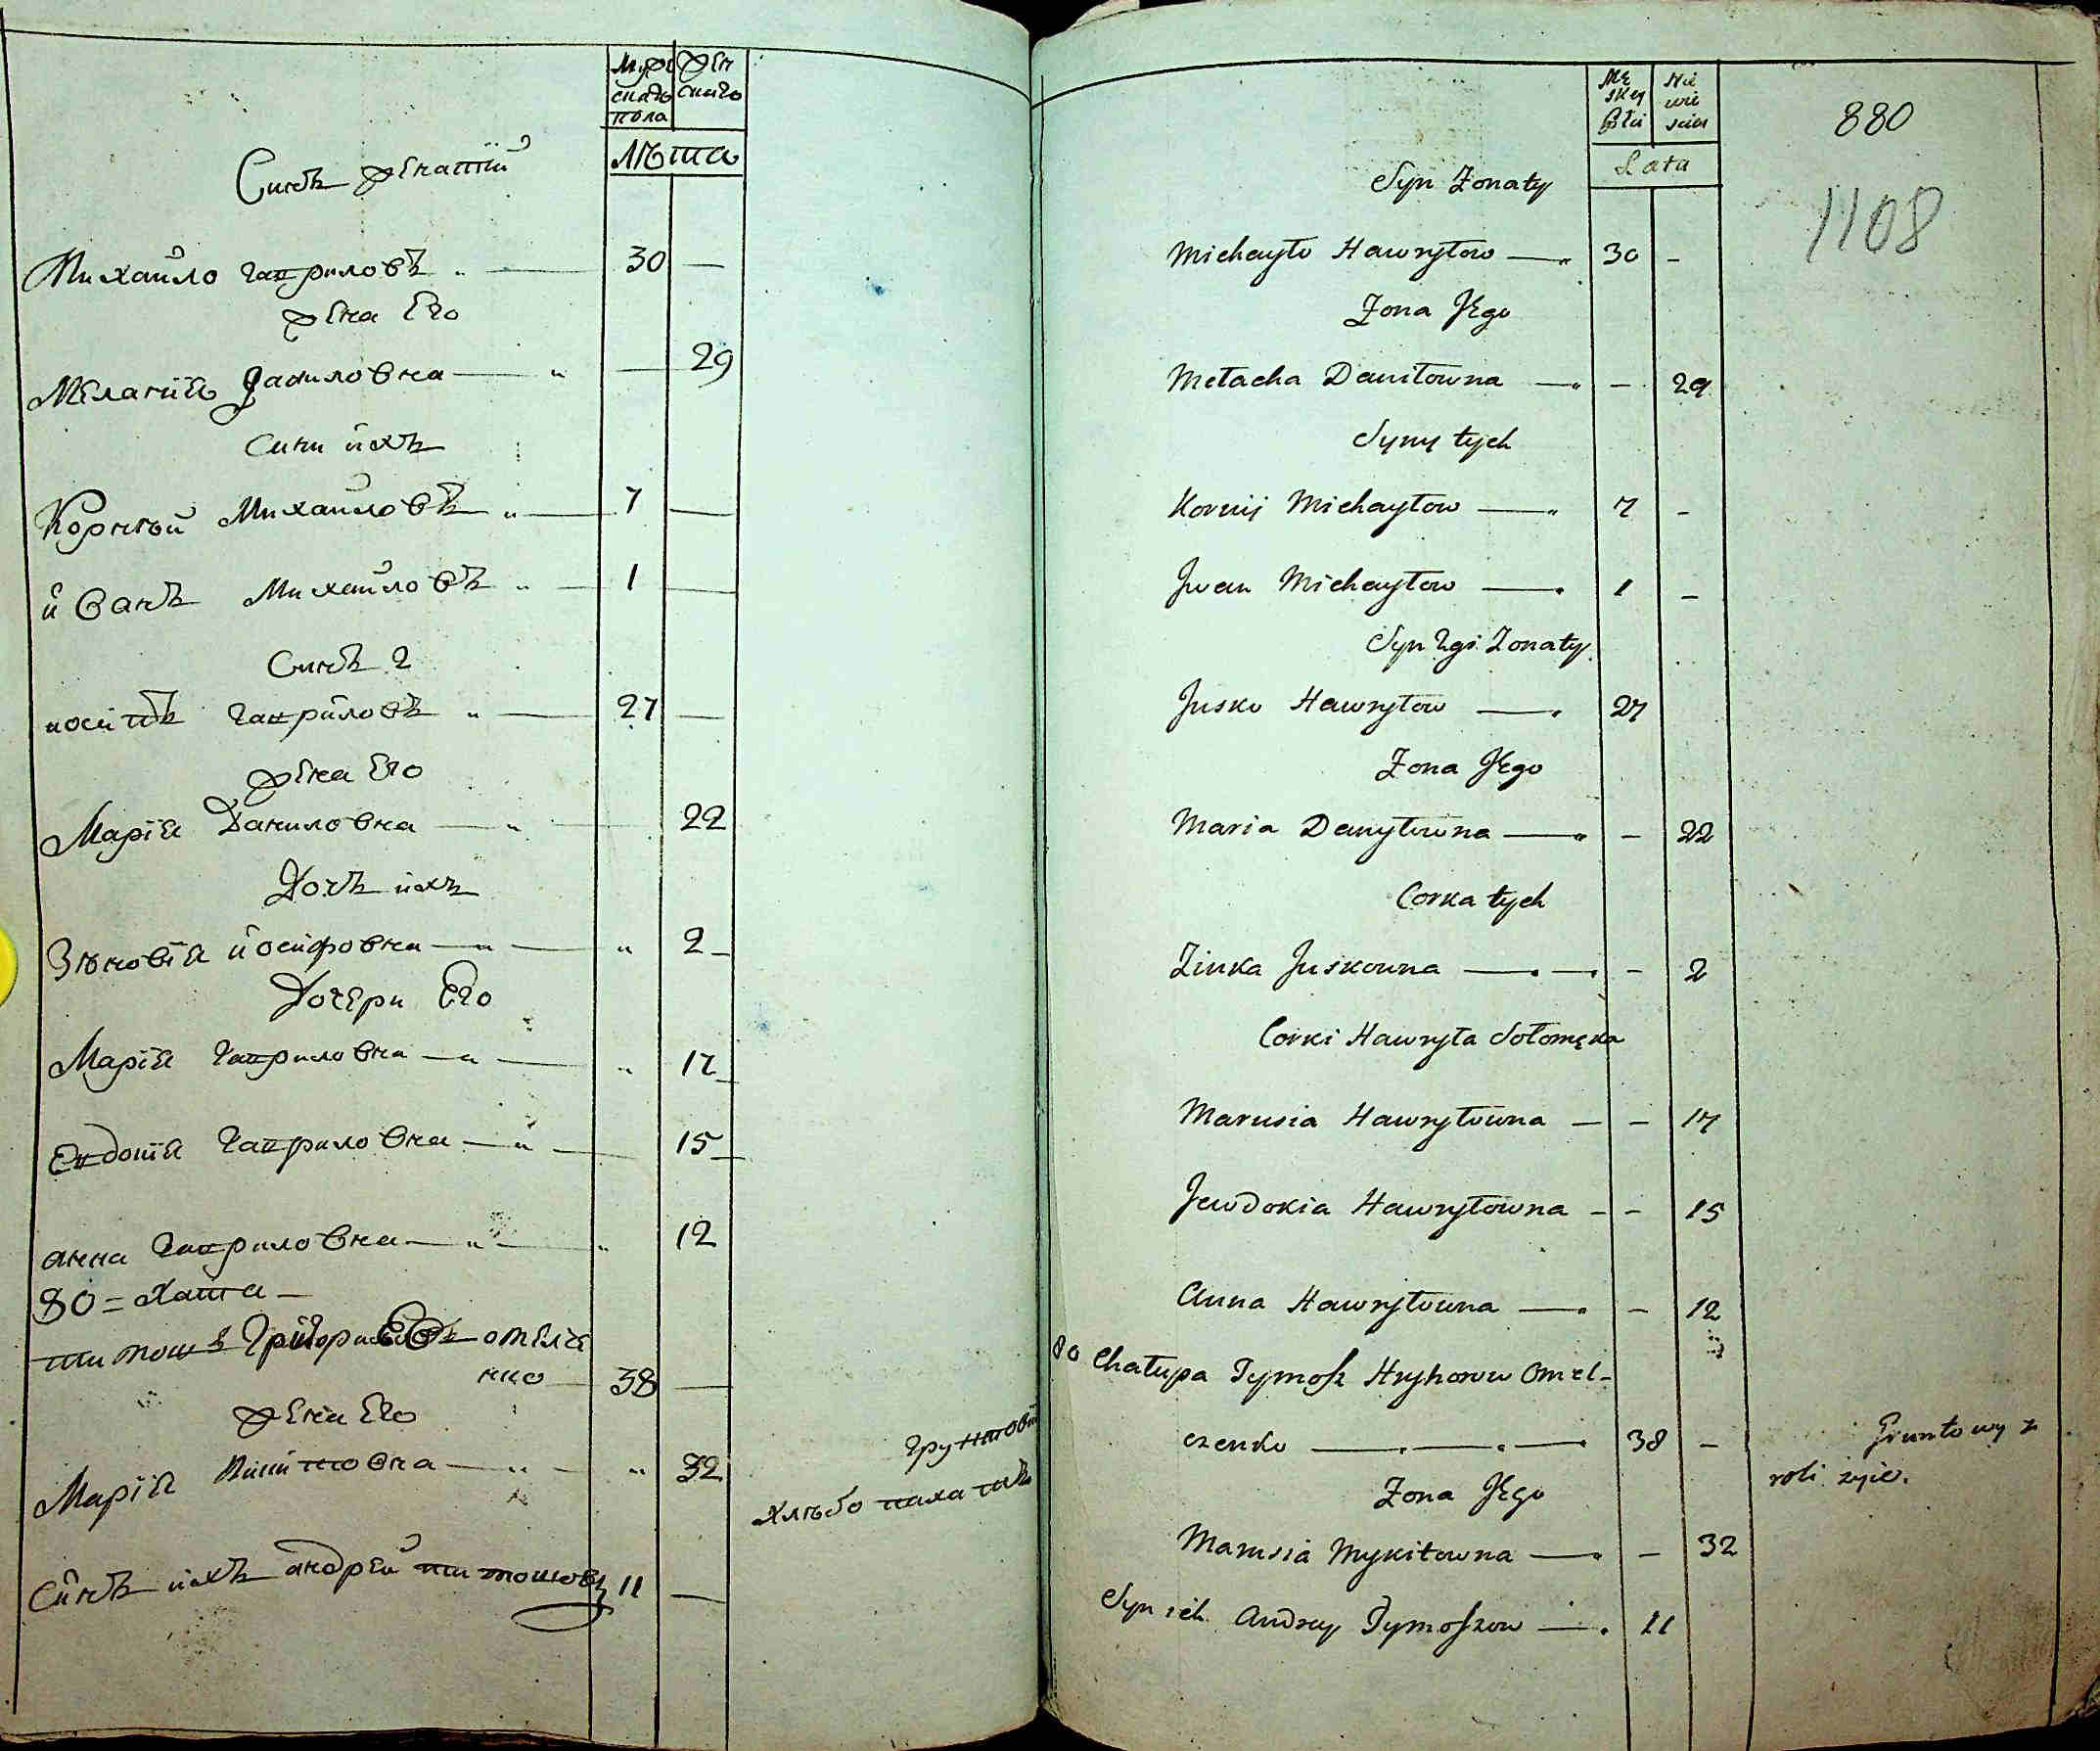 Мужескаго пола
Женскаго
Лѣта
Синъ женатій
Михайло Гавриловъ 30 —
жена Его
Меланія Даниловна — 29
Сини ихъ
Корнѣй Михайловъ 7 —
иванъ Михайловъ 1 —
Синъ 2
иосипъ Гавриловъ 27 —
жена Его
Марія Даниловна 22
Дочъ ихъ
Зѣновія иосифовна 2
Дочери Его
Марія Гавриловна 17
Евдотія Гавриловна 15
анна Гавриловна 12
80 = хата
тимошъ омелче
нко 38 —
жена Его
Марія 32
грунтовій
хлѣбопахатъ
Синъ ихъ андрей тимошовъ 11 —
Męskey płci
Niewieściey
880
Lata
1108
Syn Żonaty
Michayło Hawryłow — 30 -
Żona Jego
Mełacha Daniłowna — - 29
Syny tych
Kornij Michayłow — 7 -
Jwan Michayłow — 1 -
Syn 2gi Żonaty
Jusko Hawryłow — 27
Żona Jego
Maria Danyłowna — - 22
Corka tych
Zinka Juskowna — - 2
Corki Hawryła Sołomęka
Marusia Hawryłowna — - 17
Jewdokia Hawryłowna - - 15
Anna Hawryłowna — - 12
80 Chałupa Tymosz Hryhorow Omel-
czenko — 38 -
Gruntowy z
roli żyie.
Żona Jego
Marusia Mykitowna — - 32
Syn ich Andrey Tymoszow — 11